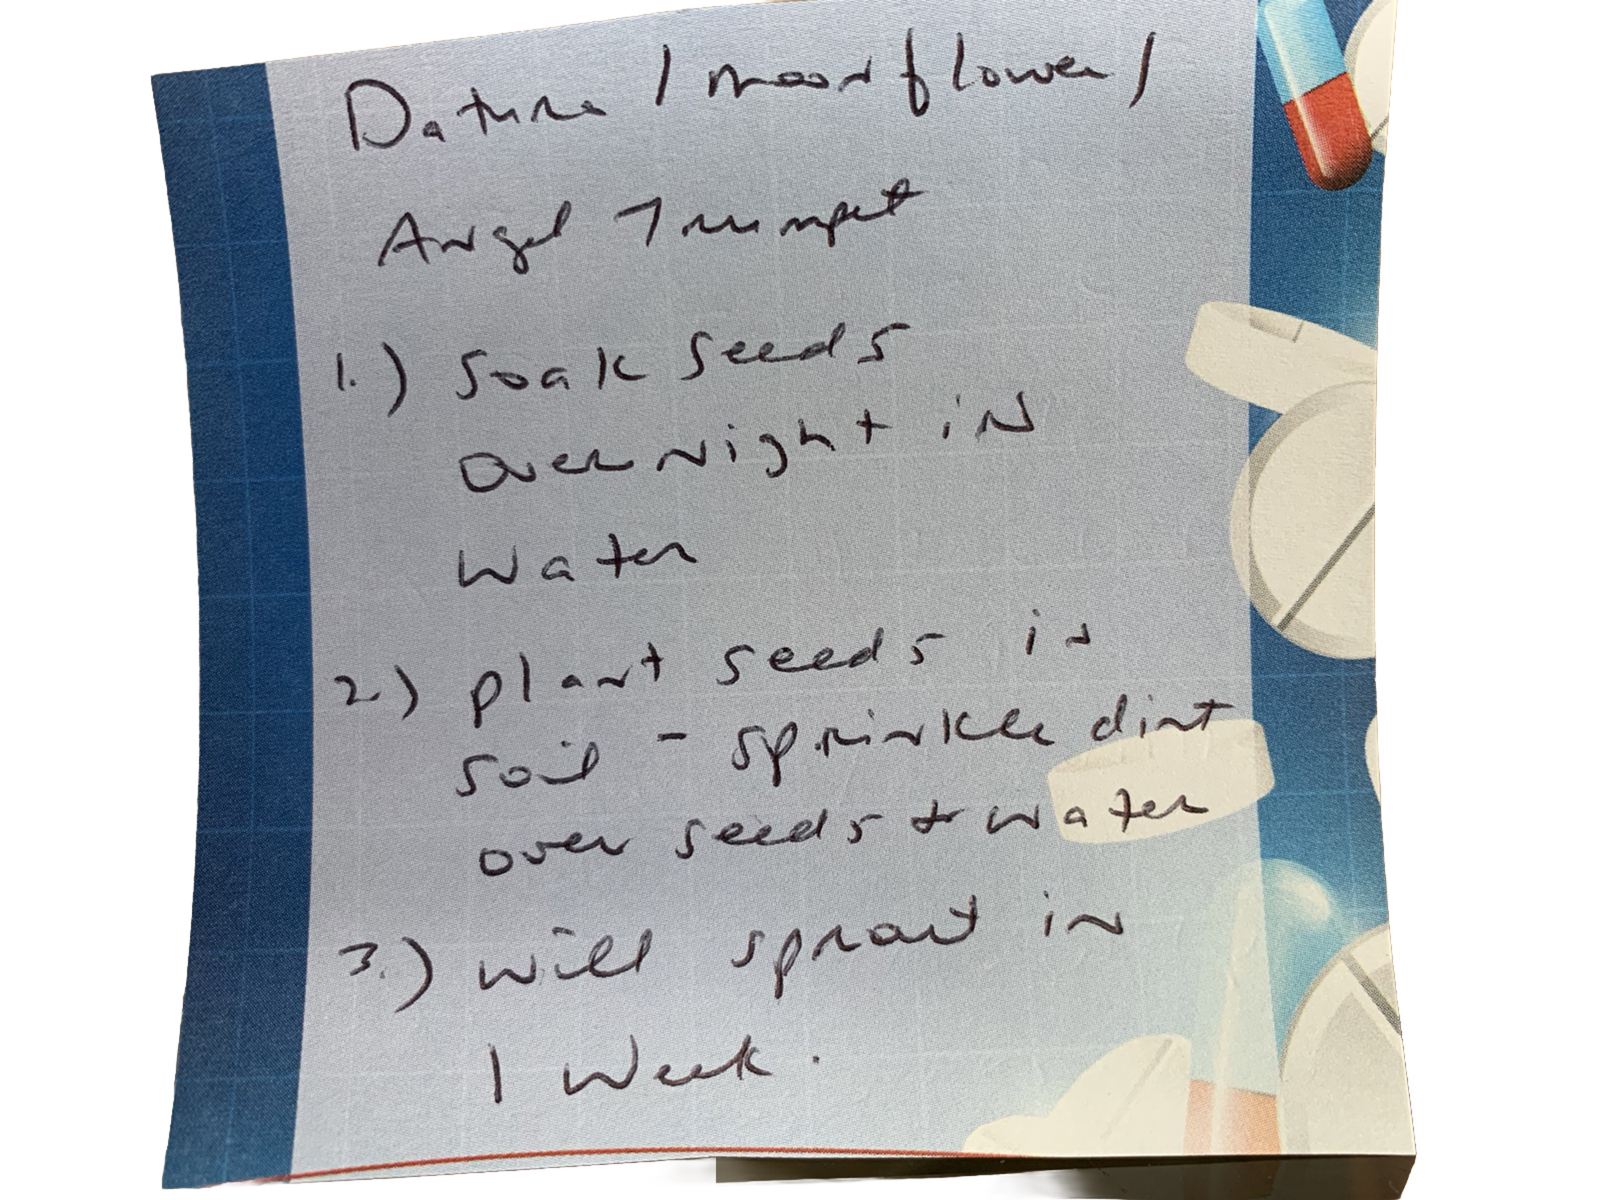 Datura / moonflower /
Angel Trumpet
1.) Soak seeds
overnight in
water
2.) plant seeds in
soil - sprinkle dirt
over seeds + water
3.) will sprout in
1 week.